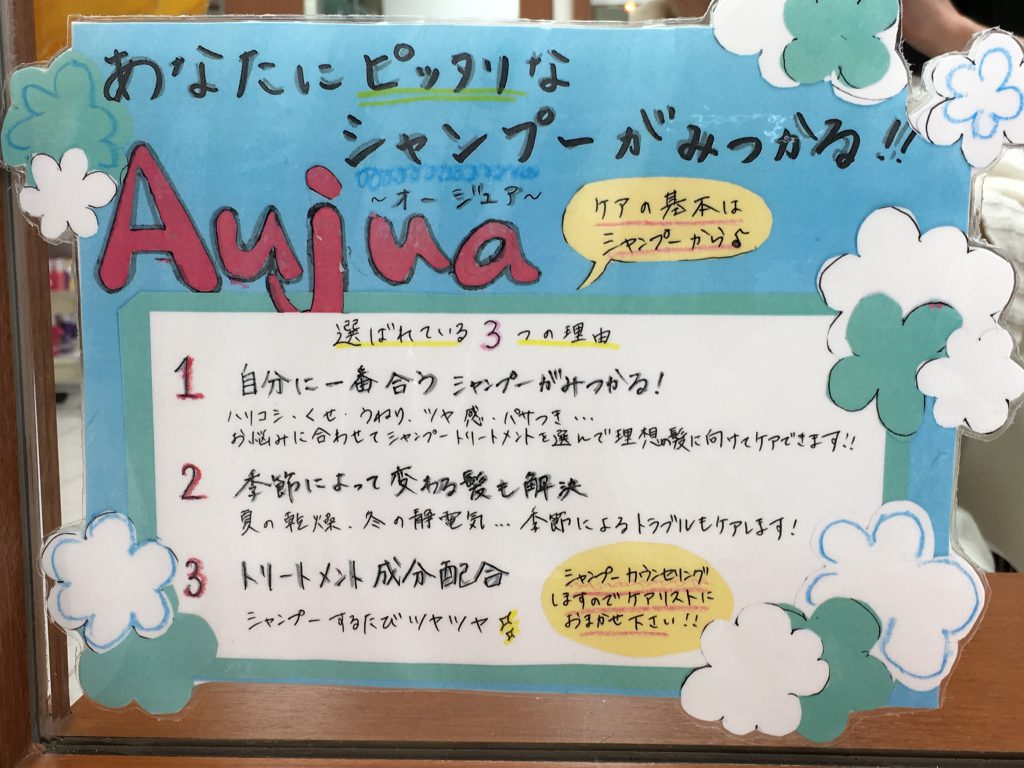 あなたにピッタリな
シャンプーがみつかる!!
Aujua
～オージュア～
ケアの基本は
シャンプーから♪
選ばれている3つの理由
1 自分に一番合うシャンプーがみつかる!
ハリコシ・くせ・うねり、ツヤ感・パサつき…
お悩みに合わせてシャンプートリートメントを選んで理想の髪に向けてケアできます!!
2 季節によって変わる髪も解決
夏の乾燥、冬の静電気…季節によるトラブルもケアします!
3 トリートメント成分配合
シャンプーするたびツヤツヤ
シャンプーカウンセリング
しますのでケアリストに
おまかせ下さい!!